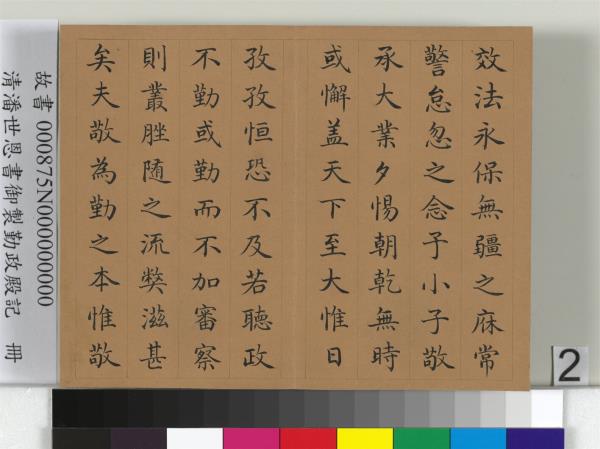 效法永保無疆之庥常
警怠忽之念予小子敬
承大業夕惕朝乾無時
或懈蓋天下至大惟日
孜孜恒恐不及若聽政
不勤或勤而不加審察
則叢脞随之流弊滋甚
矣夫敬為勤之本惟敬
故書 000875N000000000
清潘世恩書御製勤政殿記 冊
2